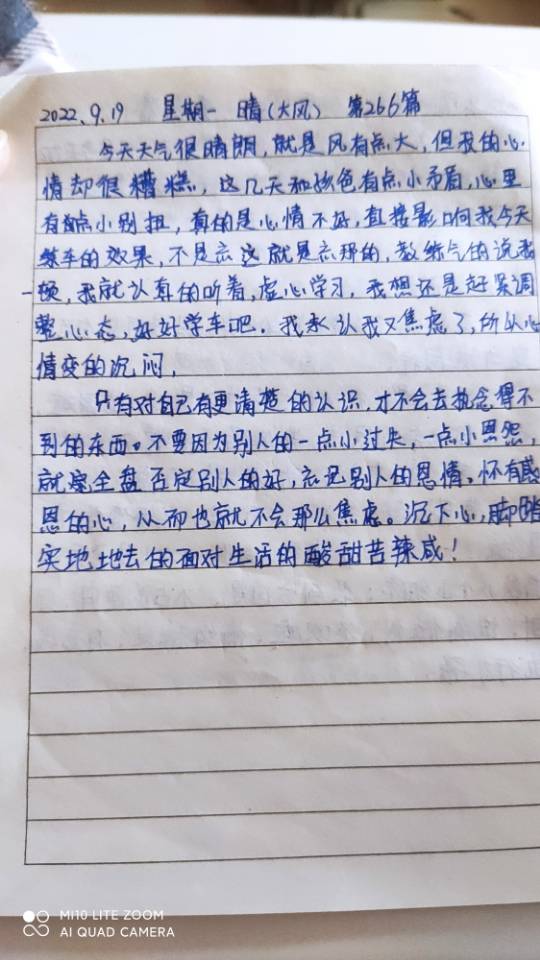 2022.9.19 星期一 晴(大风) 第266篇
今天天气很晴朗,就是风有点大,但我的心
情却很糟糕,这几天和 有点小矛盾,心里
有点小别扭,真的是心情不好,直接影响我今天
练车的效果,不是忘这就是忘那的,教练气的说我
一顿,我就认真的听着,虚心学习,我想还是赶紧调
整心态,好好学车吧.我承认我又焦虑了,所以心
情变的沉闷,
只有对自己有更清楚的认识,才不会去执念得不
到的东西。不要因为别人的一点小过失,一点小恩怨,
就完全盘否定别人的好,忘记别人的恩情。怀有感
恩的心,从而也就不会那么焦虑。沉下心,脚踏
实地地去的面对生活的酸甜苦辣咸!
MI 10 LITE ZOOM
AI QUAD CAMERA